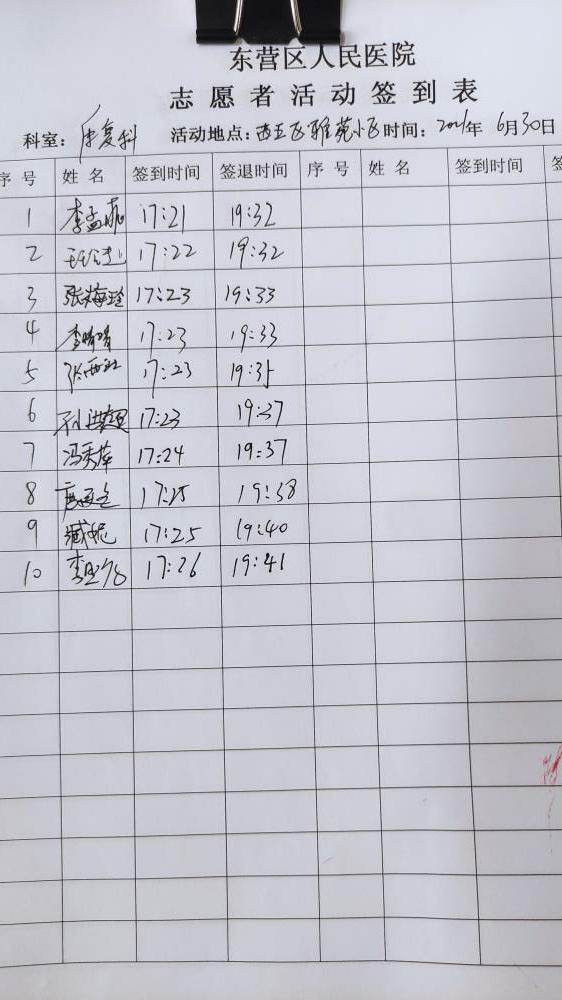 东营区人民医院
志愿者活动签到表
科室：康复科 活动地点：西五区雅苑小区 时间：2021年 6月30日
序号 姓名 签到时间 签退时间 序号 姓名 签到时间 签
1 李孟 17:21 19:32
2 17:22 19:32
3 张梅玲 17:23 19:33
4 李晴晴 17:23 19:33
5 张西 17:23 19:35
6 孙洪超 17:23 19:37
7 冯秀萍 17:24 19:37
8 17:25 19:38
9 臧妮 17:25 19:40
10 李 17:26 19:41